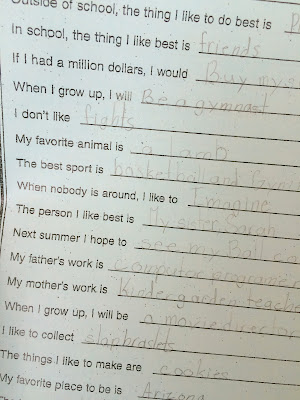 Outside of school, the thing I like to do best is
In school, the thing I like best is friends
If I had a million dollars, I would Buy my
When I grow up, I will Be a gymnast
I don't like fights
My favorite animal is a lamb
The best sport is basketball and
When nobody is around, I like to Imagine
The person I like best is My sister Sarah
Next summer I hope to see my
My father's work is computer
My mother's work is Kindergarden teacher
When I grow up, I will be a movie director
I like to collect slapbraslets
The things I like to make are cookies
My favorite place to be is Arizona